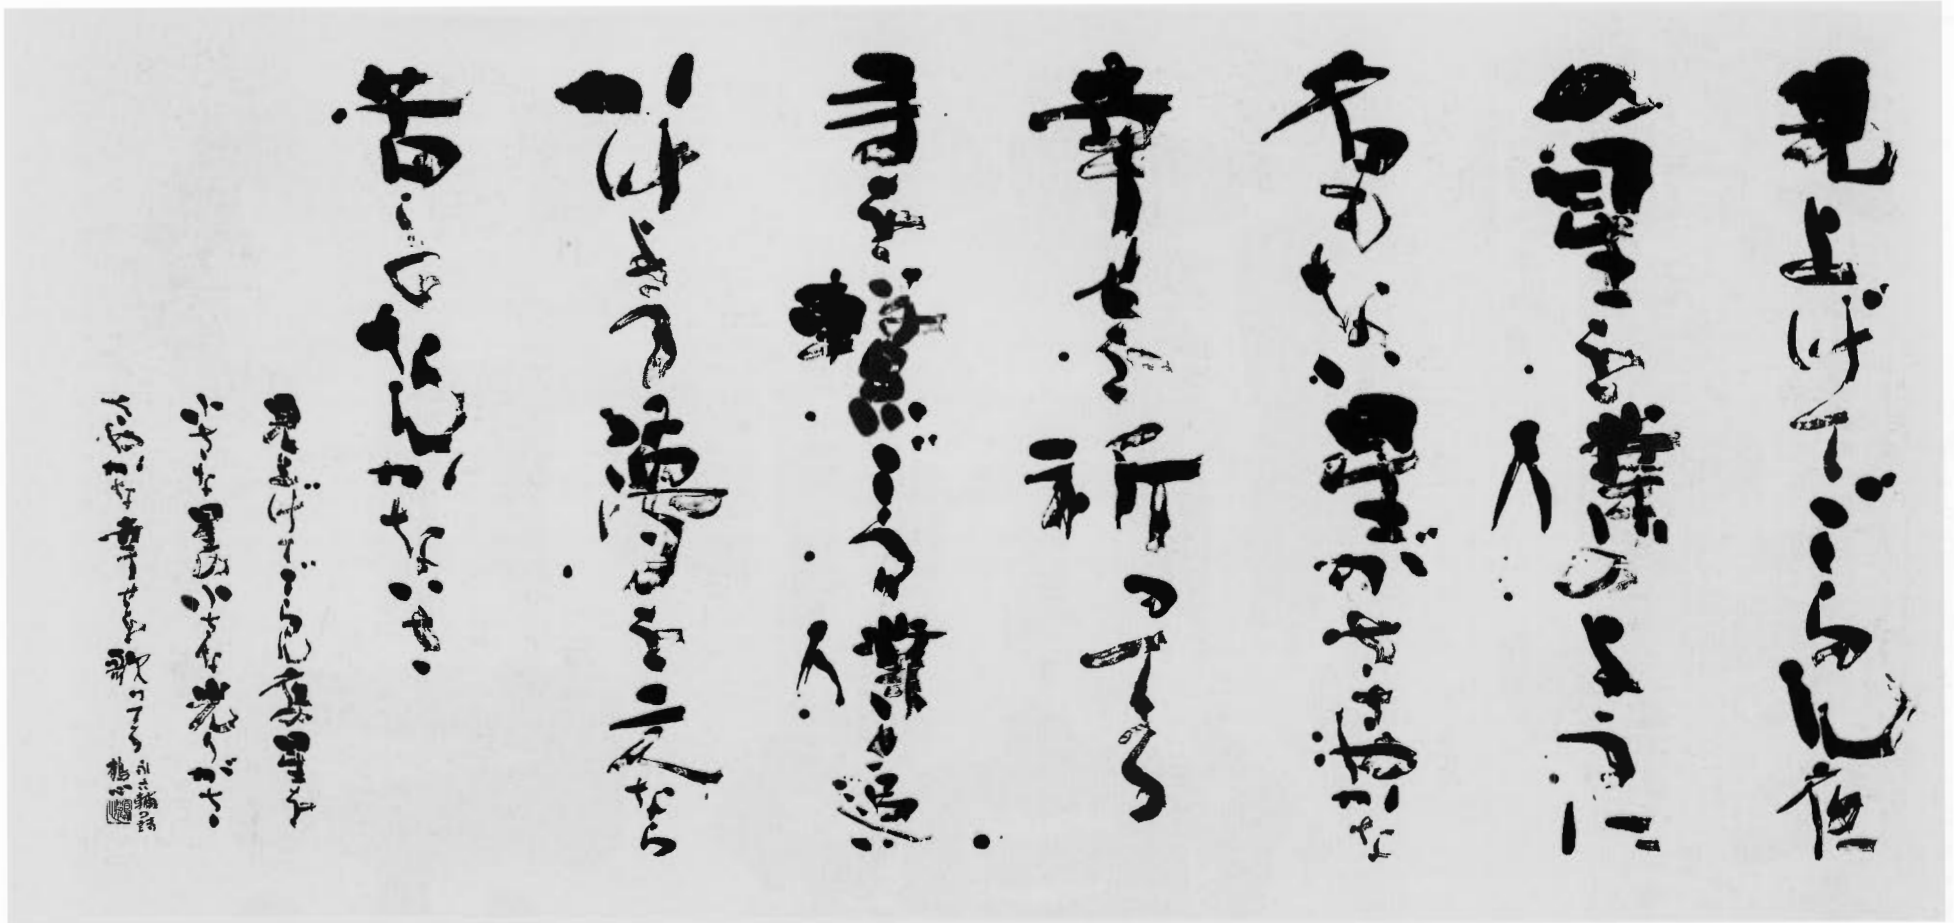 見上げてごらん夜
の星を僕のように
名もない星がささやかな
幸せを祈ってる
手を繋ごう僕と追
いかけよう夢を二人なら
苦しくなんかないさ
見上げてごらん夜の星を
小さな星の小さな光が
ささやかな幸せを歌ってる
永六輔の詩